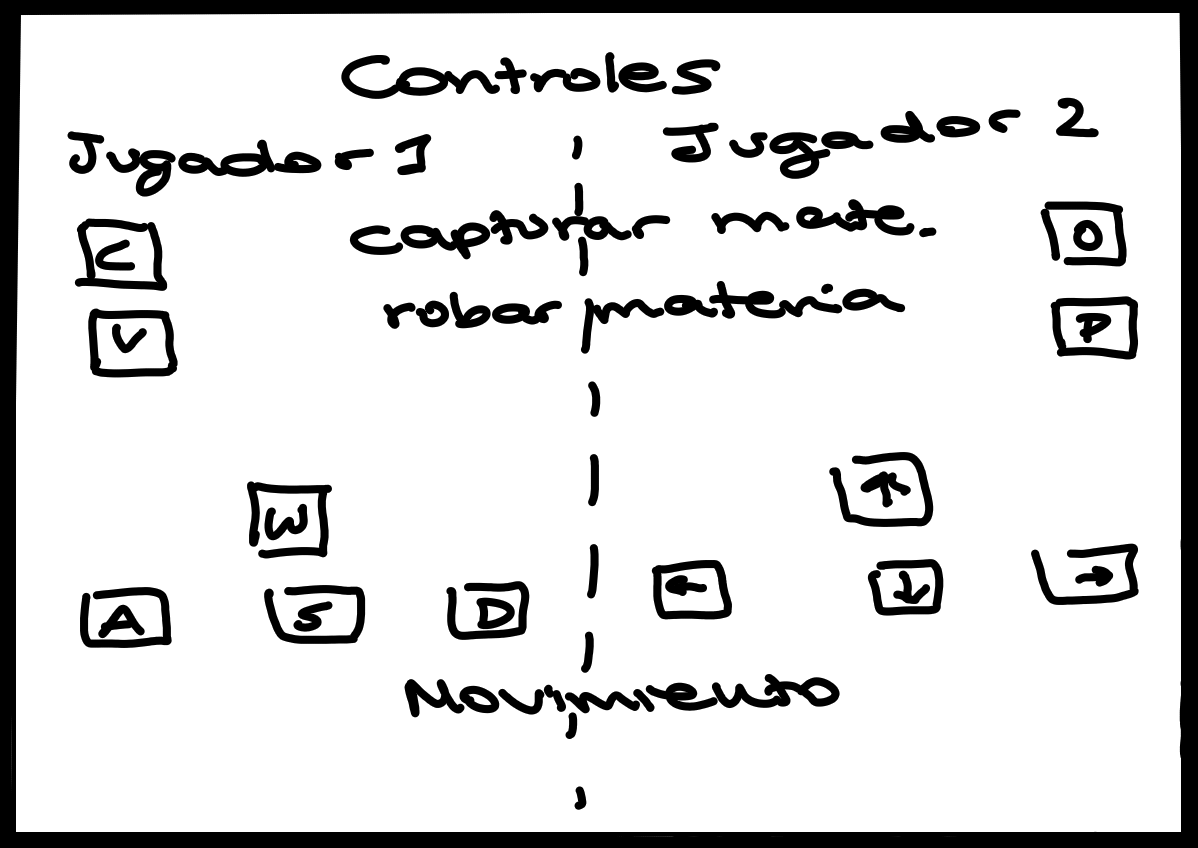 Controles
Jugador 1 Jugador 2
C capturar mate. O
V robar materia P
W ↑
A S D ← ↓ →
Movimiento